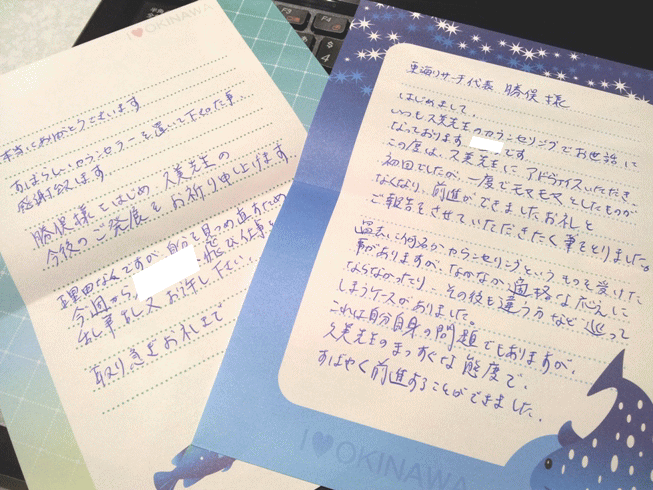 東海リサーチ代表 勝俣様
はじめまして。
いつも久美先生のカウンセリングでお世話に
なっております です
この度は、久美先生に アドヴァイスいただき、
初回でしたが、一度でモヤモヤとしたものが
なくなり、前進ができましたお礼と
ご報告をさせていただきたく筆をとりました。
過去に何名かカウンセリングというものを受けた
事がありますが、なかなか適格な
ならなかったり、その後も違う方など巡って
しまうケースがありました。
これは自分自身の問題でもありますが、
久美先生のまっすぐな態度で、
すばやく前進することができました。
I♥OKINAWA
I♥OKINAWA
本当にありがとうございます
すばらしいカウンセラーを 下さった事、
感謝致します
勝俣様をはじめ 久美先生の
今後のご発展をお祈り申し上げます。
理由なんですが、自分を見つめ直すため
今週から、 飛び仕事を
乱筆乱文お許し下さい。
取り急ぎお礼まで